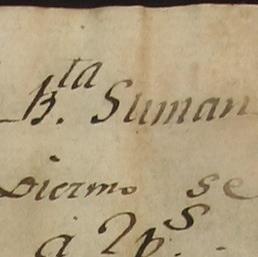 h.ta Suman
Diermo se
á 2 p.s